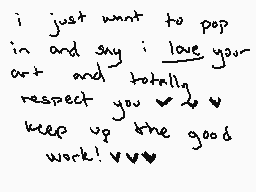 i just want to pop
in and say i love your
art and totally
respect you ♥ ♥ ♥
keep up the good
work! ♥♥♥